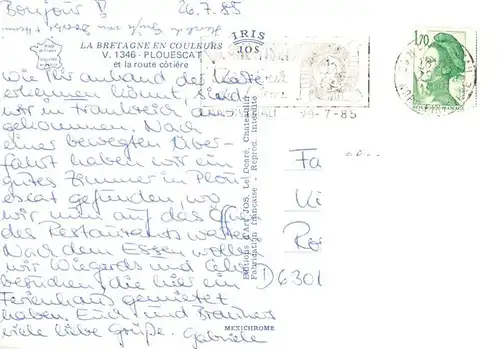 Bonjour !
26.7.85
IRIS
JOS
LA BRETAGNE EN COULEURS
V. 1346 - PLOUESCAT
et la route côtière
wie Ihr anhand der Karte
erkennen könnt, sind
wir in Frankreich an-
gekommen. Nach
einer bewegten Über-
fahrt haben wir ein
gutes Zimmer in Plou-
escat gefunden, wo
wir nun auf das Öffnen
des Restaurants warten.
Nach dem Essen wollen
wir Wiegerds und
besuchen, die hier ein
Ferienhaus gemietet
haben. Euch und
viele liebe Grüße. Gabriele
Editions d'Art JOS, Le Doaré, Châteaulin
Fabrication française - Reprod. interdite
MEXICHROME
1,70
29-7-85
Fa
Ki
Ro
D6301